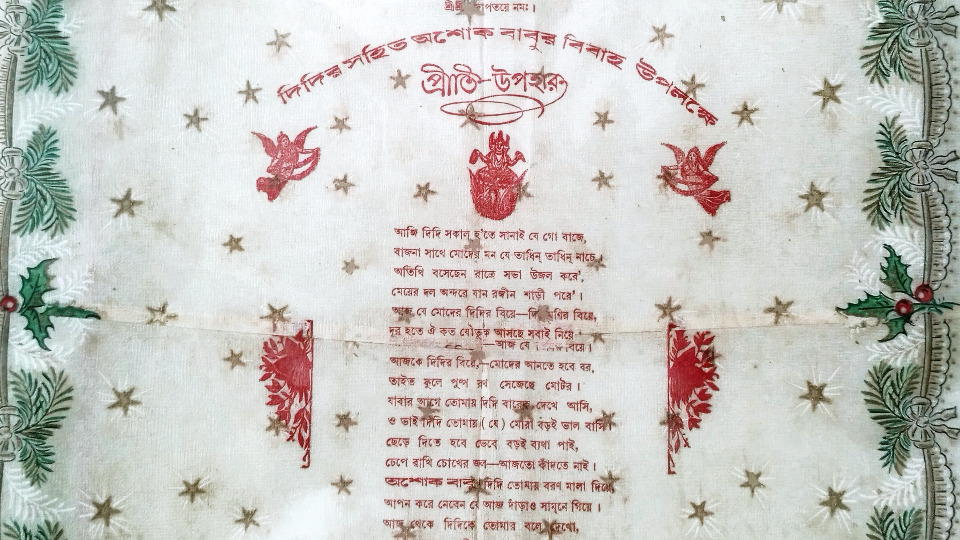 শ্রীশ্রী প্রজাপতয়ে নমঃ।
দিদির সহিত অশোক বাবুর বিবাহ উপলক্ষে
প্রীতি-উপহার
আজি দিদি সকাল হ'তে সানাই যে গো বাজে,
বাজনা সাথে মোদের মন যে তাধিন্ তাধিন্ নাচে।
অতিথি বসেছেন রাত্রে সভা উজল করে',
মেয়ের দল অন্দরে যান রঙ্গীন শাড়ী পরে'।
আজ যে মোদের দিদির বিয়ে—দিদিমণির বিয়ে,
দূর হতে ঐ কত যৌতুক আসছে সবাই নিয়ে
—আজ যে বিয়ে।
আজকে দিদির বিয়ে,—মোদের আনতে হবে বর,
তাইত ফুলে পুষ্প রথ সেজেছে মোটর।
যাবার আগে তোমায় দিদি বারেক দেখে আসি,
ও ভাই দিদি তোমায় (যে) মোরা বড়ই ভাল বাসি।
ছেড়ে দিতে হবে ভেবে বড়ই ব্যথা পাই,
চেপে রাখি চোখের জল—আজতো কাঁদতে নাই।
অশোক বাবু দিদি তোমায় বরণ মালা দিয়ে,
আপন করে নেবেন যে আজ দাঁড়াও সামনে গিয়ে।
আজ থেকে দিদিকে তোমার বলে দেখো,